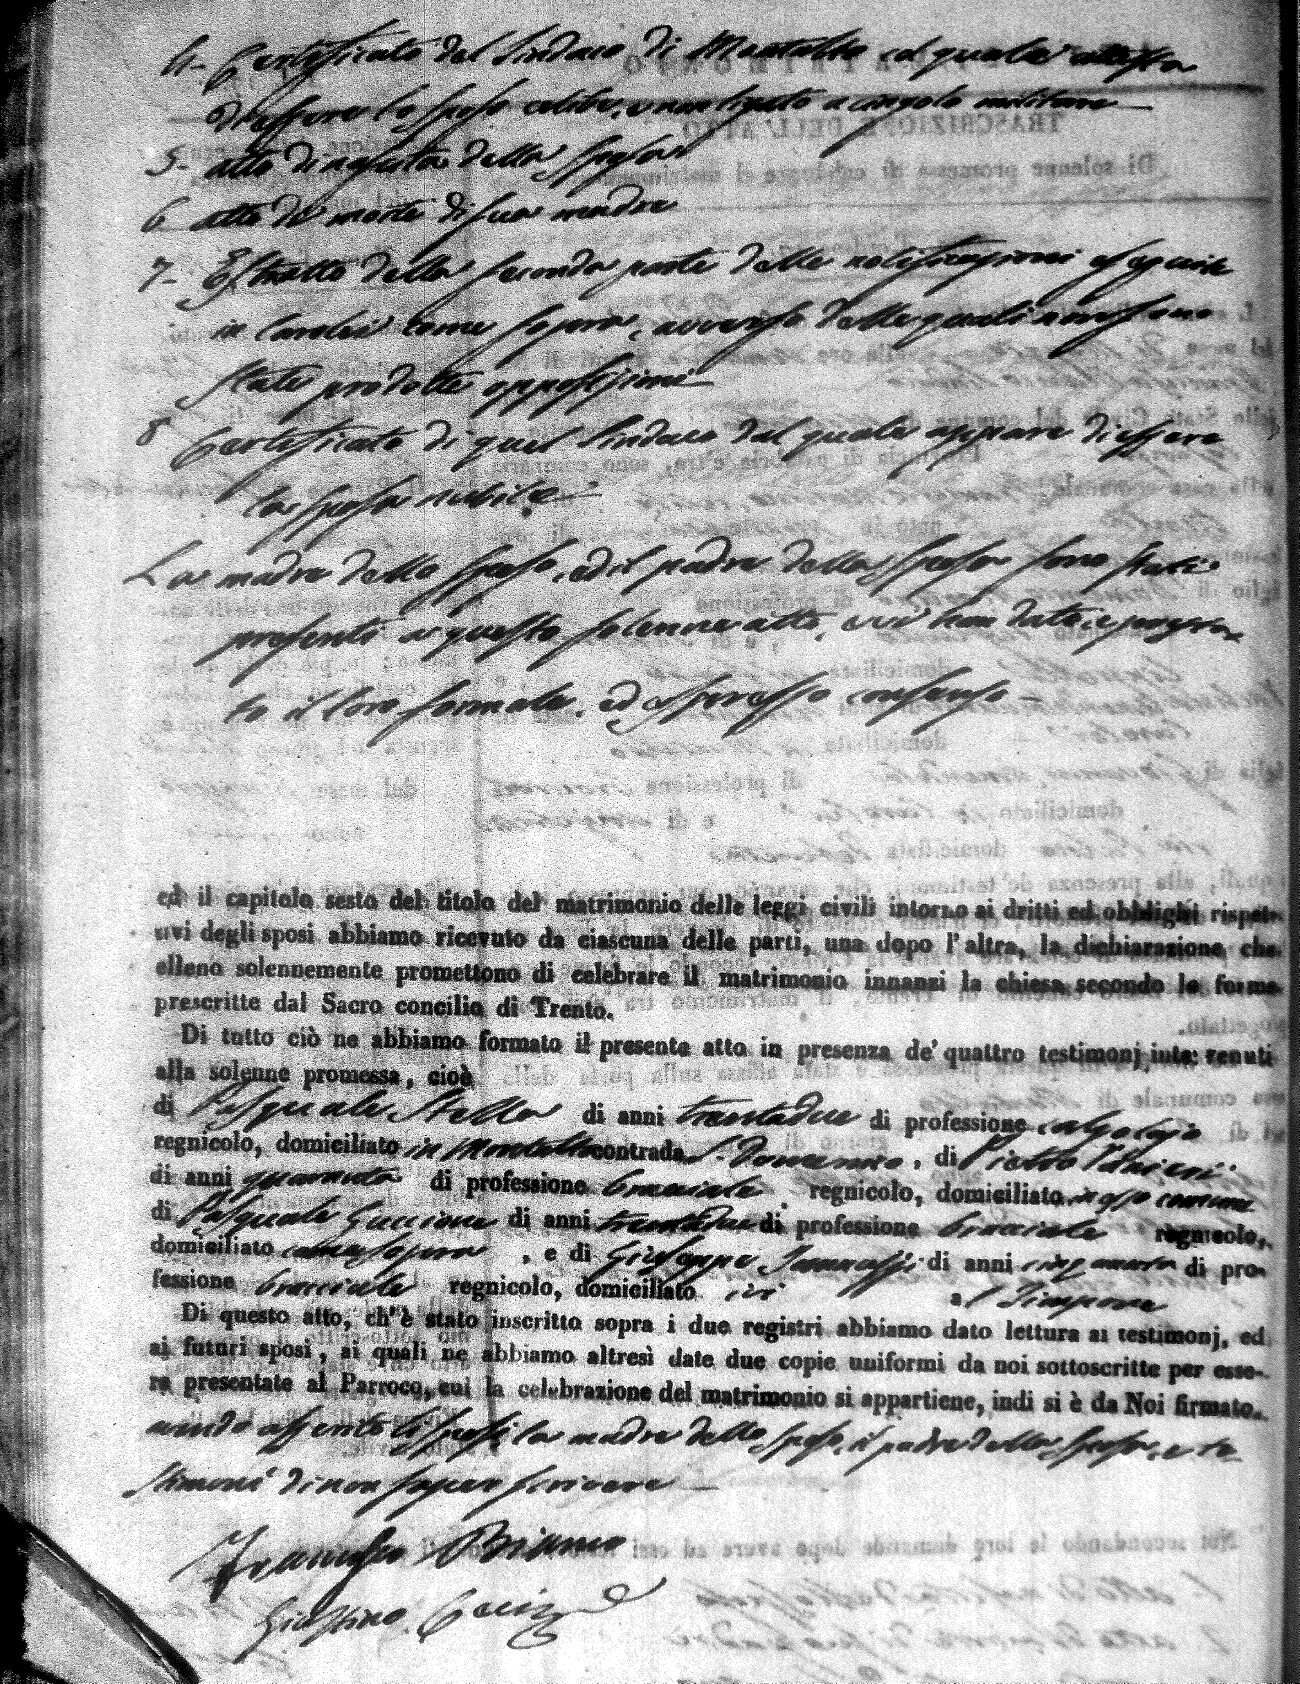 4- Certificato del Sindaco di Montalto col quale attesta
di essere lo sposo celibe, e non ligato a cingolo militare
5- atto di nascita della sposa
6 atto di morte di sua madre
7- Estratto della seconda parte delle notificazioni eseguite
in come sopra, avverso delle quali non sono
state prodotte opposizioni
8 Certificato di quel Sindaco dal quale appare di essere
la sposa nubile
La madre dello sposo, ed il padre della sposa sono stati
presenti a questo solenne atto, e vi han dato, e
to il loro formale, ed espresso consenso
ed il capitolo sesto del titolo del matrimonio delle leggi civili intorno ai dritti ed obblighi rispet-
tivi degli sposi abbiamo ricevuto da ciascuna delle parti, una dopo l'altra, la dichiarazione che
elleno solennemente promettono di celebrare il matrimonio innanzi la chiesa secondo le forme
prescritte dal Sacro concilio di Trento.
Di tutto ciò ne abbiamo formato il presente atto in presenza de' quattro testimonj inte: venuti
alla solenne promessa, cioè
di Pasquale Stella di anni trentadue di professione calzolajo
regnicolo, domiciliato in Montalto contrada S. Domenico, di Pietro
di anni quaranta di professione bracciale regnicolo, domiciliato in esso comune
di Pasquale Guccione di anni trentadue di professione bracciale regnicolo,
domiciliato come sopra, e di Giuseppe di anni cinquanta di pro-
fessione bracciale regnicolo, domiciliato ivi al Timpone
Di questo atto, ch'è stato inscritto sopra i due registri abbiamo dato lettura ai testimonj, ed
ai futuri sposi, ai quali ne abbiamo altresì date due copie uniformi da noi sottoscritte per esse-
re presentate al Parroco, cui la celebrazione del matrimonio si appartiene, indi si è da Noi firmato.
avendo asserito li sposi, la madre dello sposo, il padre della sposa, e te
stimoni di non saper scrivere